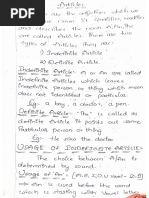 Articles
are the adjective which we
and describes the noun A, An, the
are called Articles. There are two
types of Articles They are:
1) Indefinite Article
2) Definite Article
Indefinite Article: A or An are called
Indefinite Articles which leaves
Indefinite person or thing which mean
does not Identified or particular.
Eg: a boy, a doctor, a pen.
Definite Article: "The" is called as
definite Article It points out some
Particular person or thing
Eg: He saw the doctor
USAGE OF INDEFINITE ARTICLE:
The choice between A/An is
determined by sound.
Usage of 'An': (A, E, I, O, U Vowel
→ An is used before the word
which is starting with Vowel letter